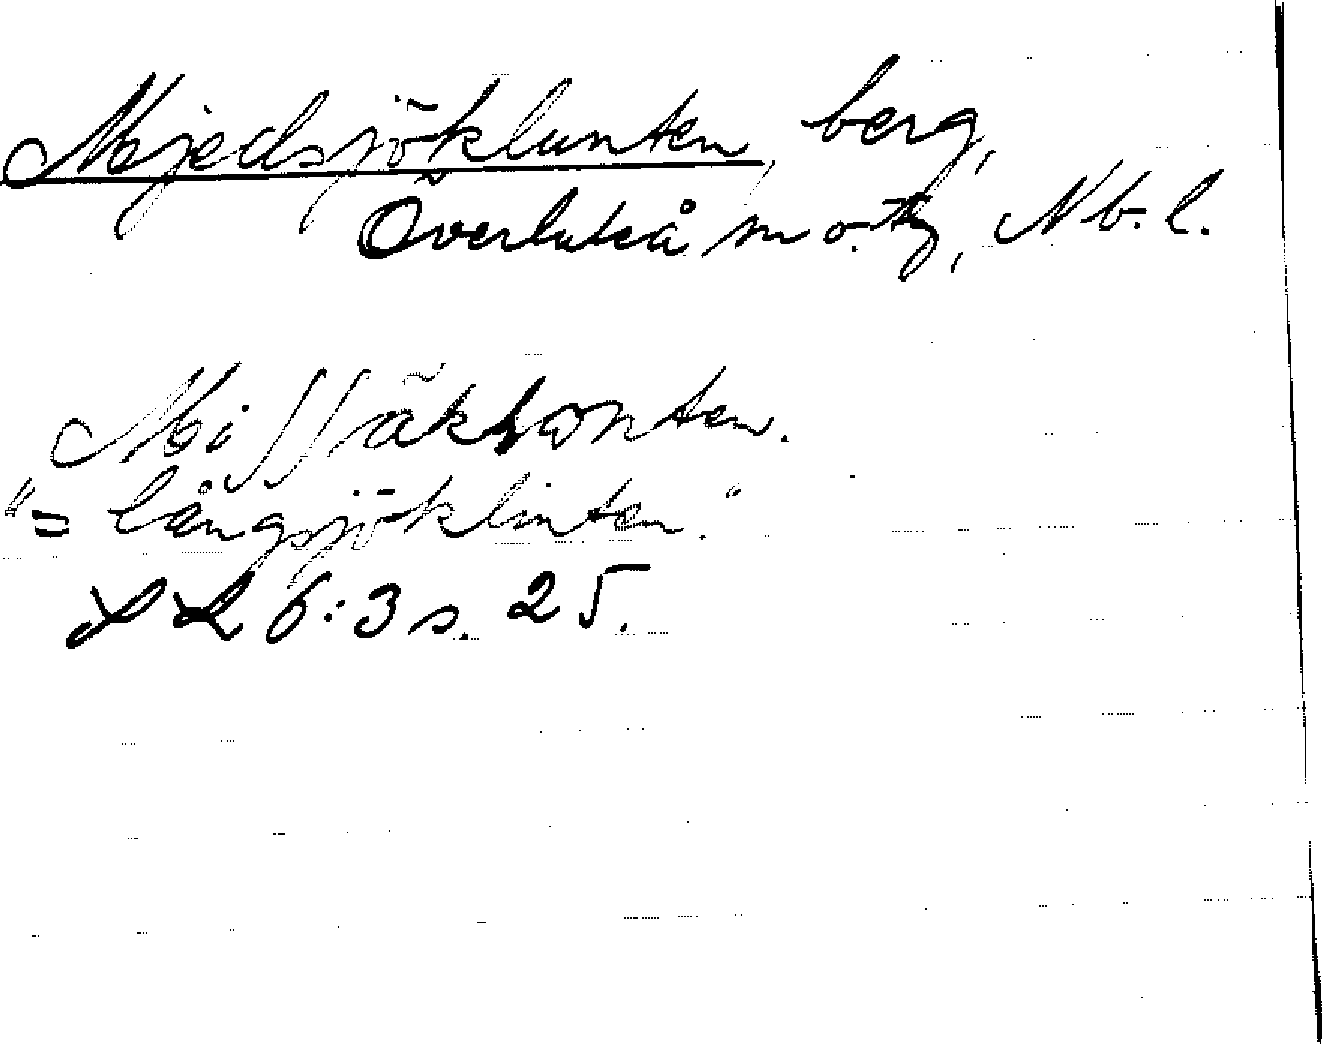 Mjedsjöklunten, berg,
Överluleå sn o. tg, Nb. l.
Mi ʃʃäkkwonten.
"= långsjöklinten."
XL 6:3 s. 25.